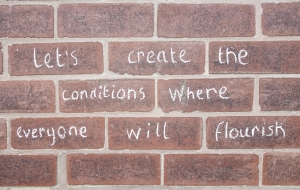 Let's create the
conditions where
everyone will flourish